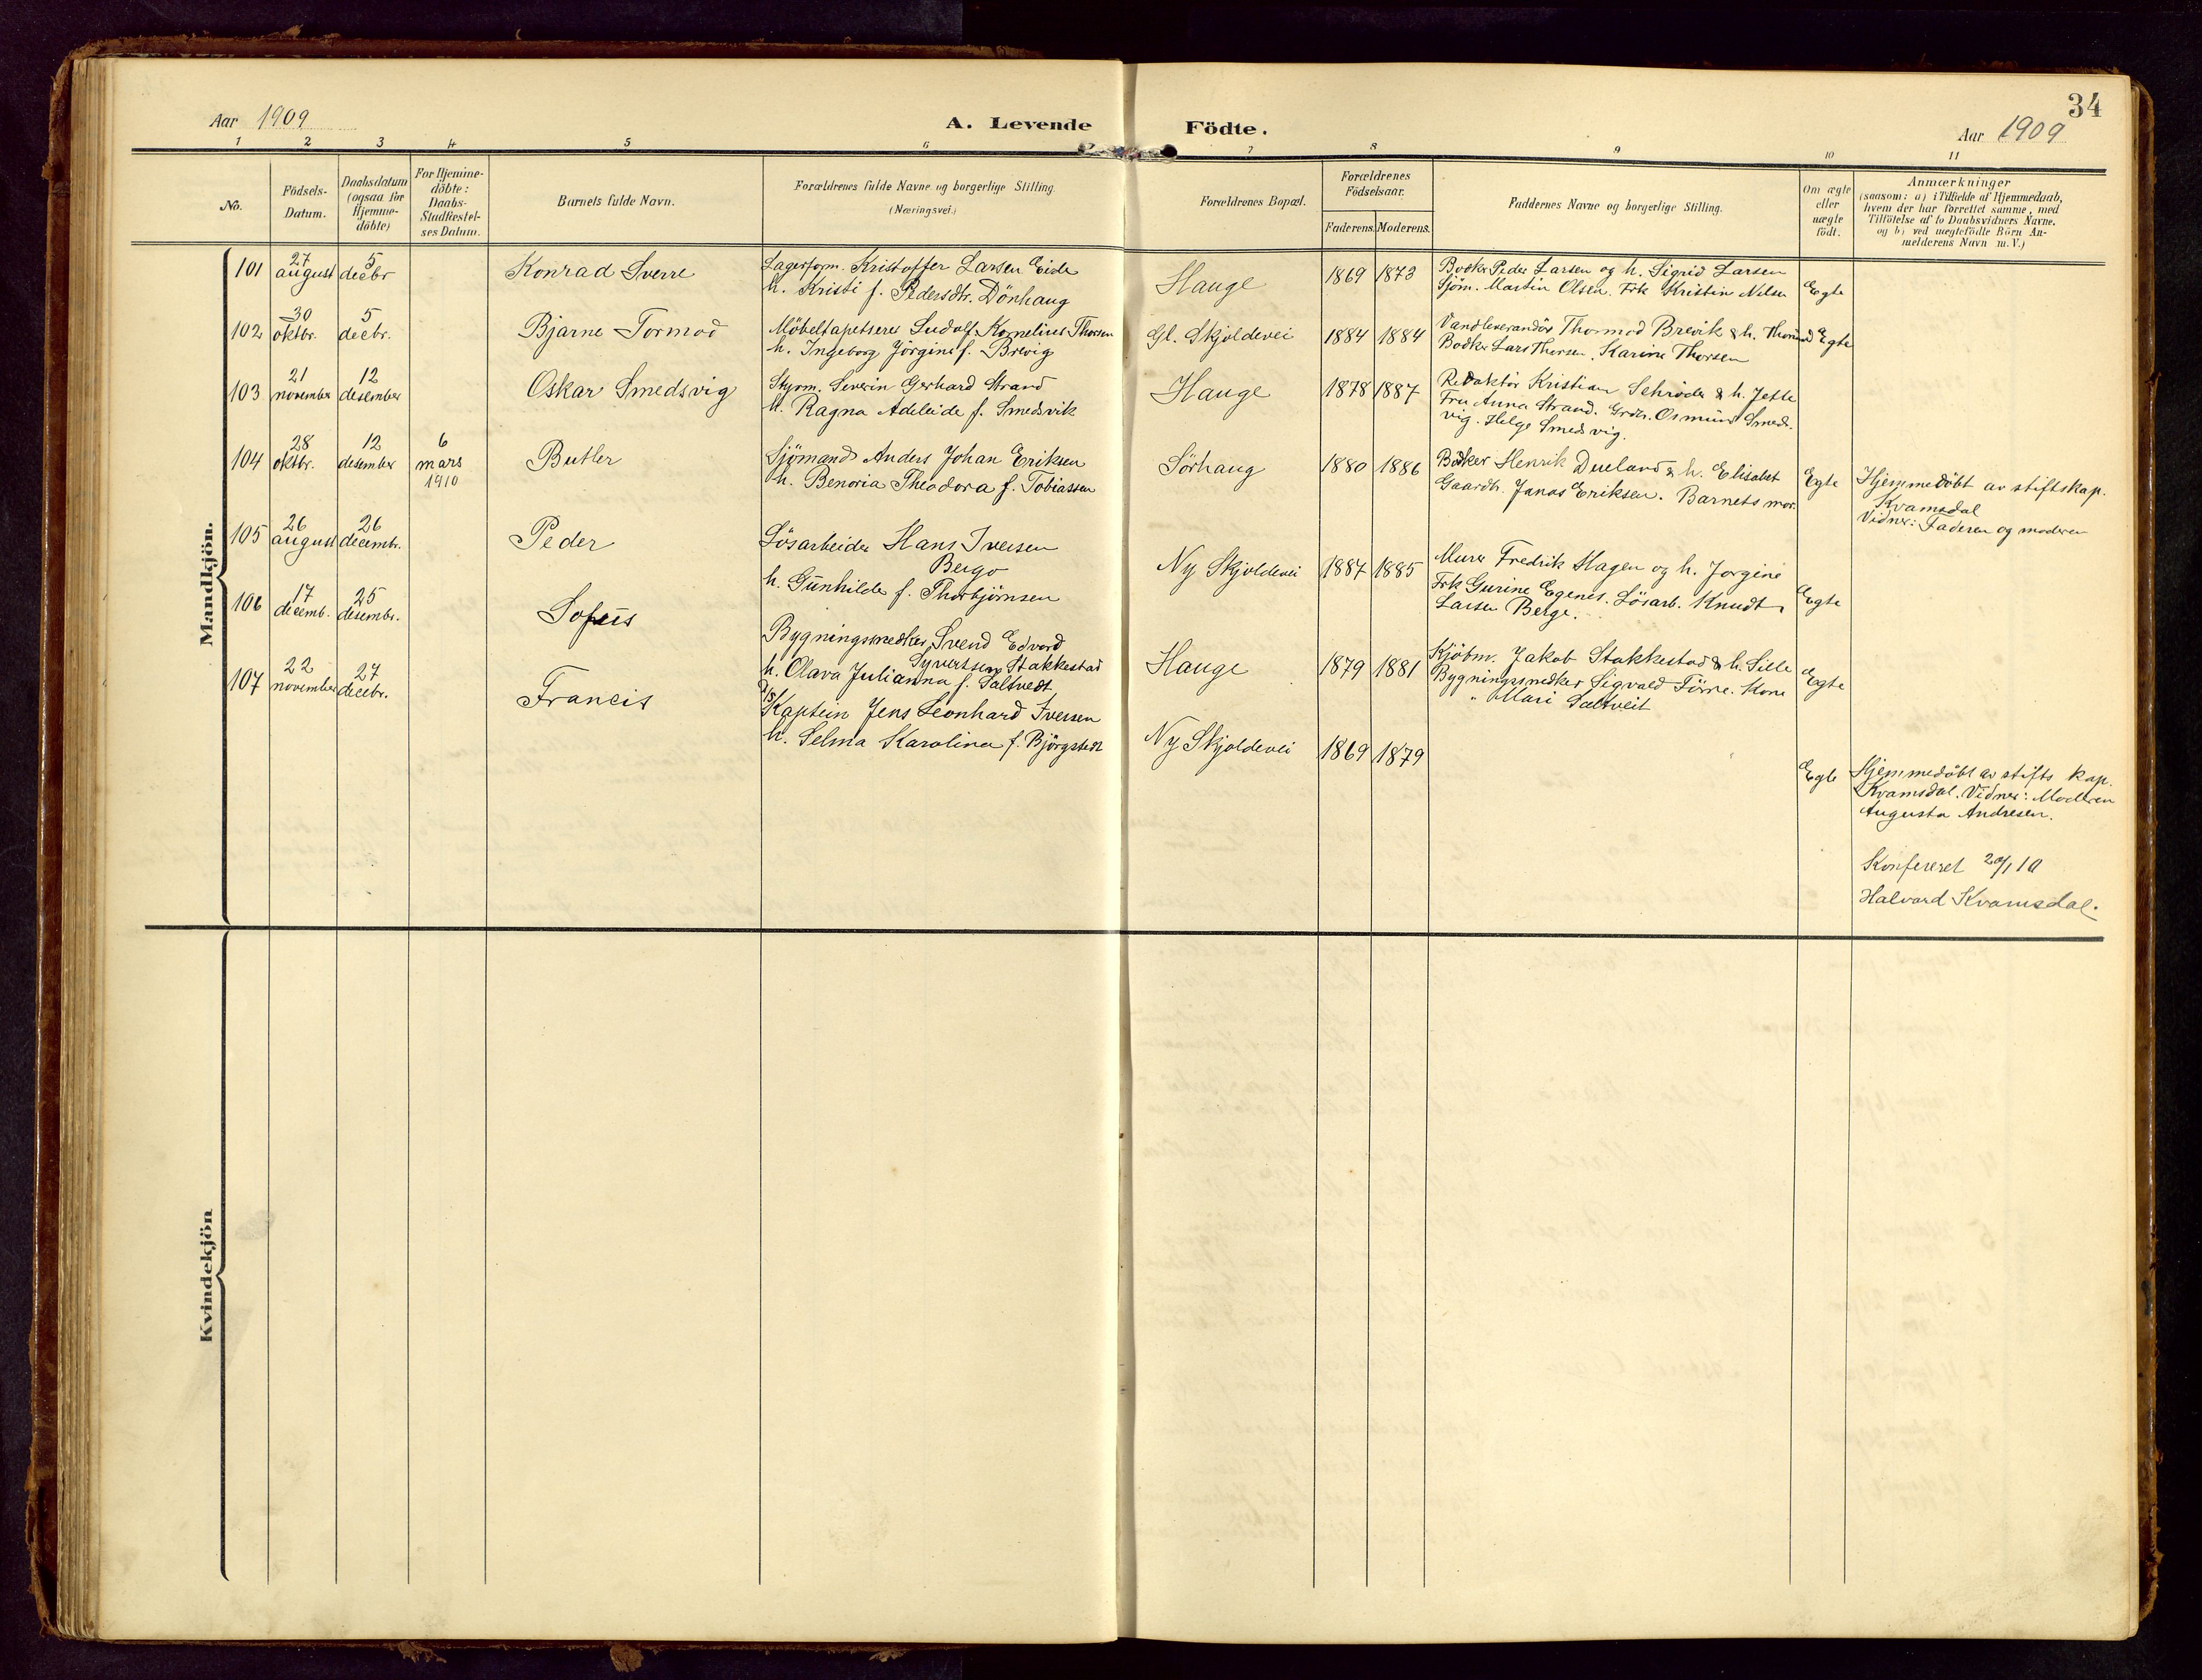 34
Aar 1909
A. Levende Födte.
Aar 1909
1 2 3 4 5 6 7 8 9 10 11
No.
Födsels-
Datum.
Daabsdatum
(ogsaa for
Hjemme-
döbte)
For Hjemme-
döbte:
Daabs-
Stadfæstel-
ses Datum.
Barnets fulde Navn.
Forældrenes fulde Navne og borgerlige Stilling.
(Næringsvei.)
Forældrenes Bopæl.
Forældrenes
Födselsaar.
Faderens. Moderens.
Faddernes Navne og borgerlige Stilling.
Om ægte
eller
uægte
født.
Anmærkninger
(saasom: a) i Tilfælde af Hjemmedaab,
hvem der har forrettet samme, med
Tilföielse af to Daabsvidners Navne.
og b) ved uægtefödte Börn An-
melderens Navn m. V.)
Mandkjön.
101
27
august
5
decbr
Konrad Sverre
Lagerform. Kristoffer Larsen Eide
h. Kristi f. Pedersdtr. Dönhaug
Hauge
1869 1873
Bødker Peder Larsen og h. Sigrid Larsen
Sjöm. Martin Olsen. Frk Kristin Nilsen
Egte
102
30
oktbr.
5
decbr.
Bjarne Tormod
Möbeltapetserer Ludolf Kornelius Thorsen
h. Ingeborg Jörgine f. Brevig
Gl. Skjoldevei
1884 1884
Vandleverandör Thormod Brevik & h.
Bødker Lars Thorsen. Karine Thorsen
Egte
103
21
november
12
desember
Oskar Smedsvig
Styrm. Severin Gerhard Strand
h. Ragna Adeleide f. Smedsvik
Hauge
1878 1887
Redaktör Kristian Schröder & h. Jette
Fru Anna Strand. Grdr. Osmund Smeds-
vig. Helge Smedsvig.
104
28
oktbr.
12
desember
6
mars
1910
Butler
Sjömand Anders Johan Eriksen
h. Benoria Theodora f. Tobiassen
Sörhaug
1880 1886
Bødker Henrik Dueland & h. Elisabet
Gaardbr. Jonas Eriksen. Barnets mor.
Egte
Hjemmedöbt av stiftskap.
Kvamsdal
Vidner: Faderen og moderen
105
26
august
26
decembr.
Peder
Lösarbeider Hans Iversen
Bergo
h. Gunhilde f. Thorbjörnsen
Ny Skjoldevei
1887 1885
Murer Fredrik Hagen og h. Jorgine
Frk Gurine Egenes. Lösarb. Knudt
Larsen Berge.
Egte
106
17
decemb.
25
desembr.
Sofus
Bygningssnedker Svend Edvard
Syvertsen Stakkestad
h. Olava Julianna f. Saltvedt
Hauge
1879 1881
Kjöbm. Jakob Stakkestad & h. Sille
Bygningssnedker Sigvald Törre. Kone
" Mari Saltveit
Egte
107
22
november
27
decbr.
Francis
Kaptein Jens Leonhard Iversen
h. Selma Karolina f. Björgstedt
Ny Skjoldevei
1869 1879
Egte
Hjemmedöbt av stifts kap.
Kvamsdal. Vidner: Moderen
Augusta Andresen.
Konfereret
Halvard Kvamsdal.
Kvindekjön